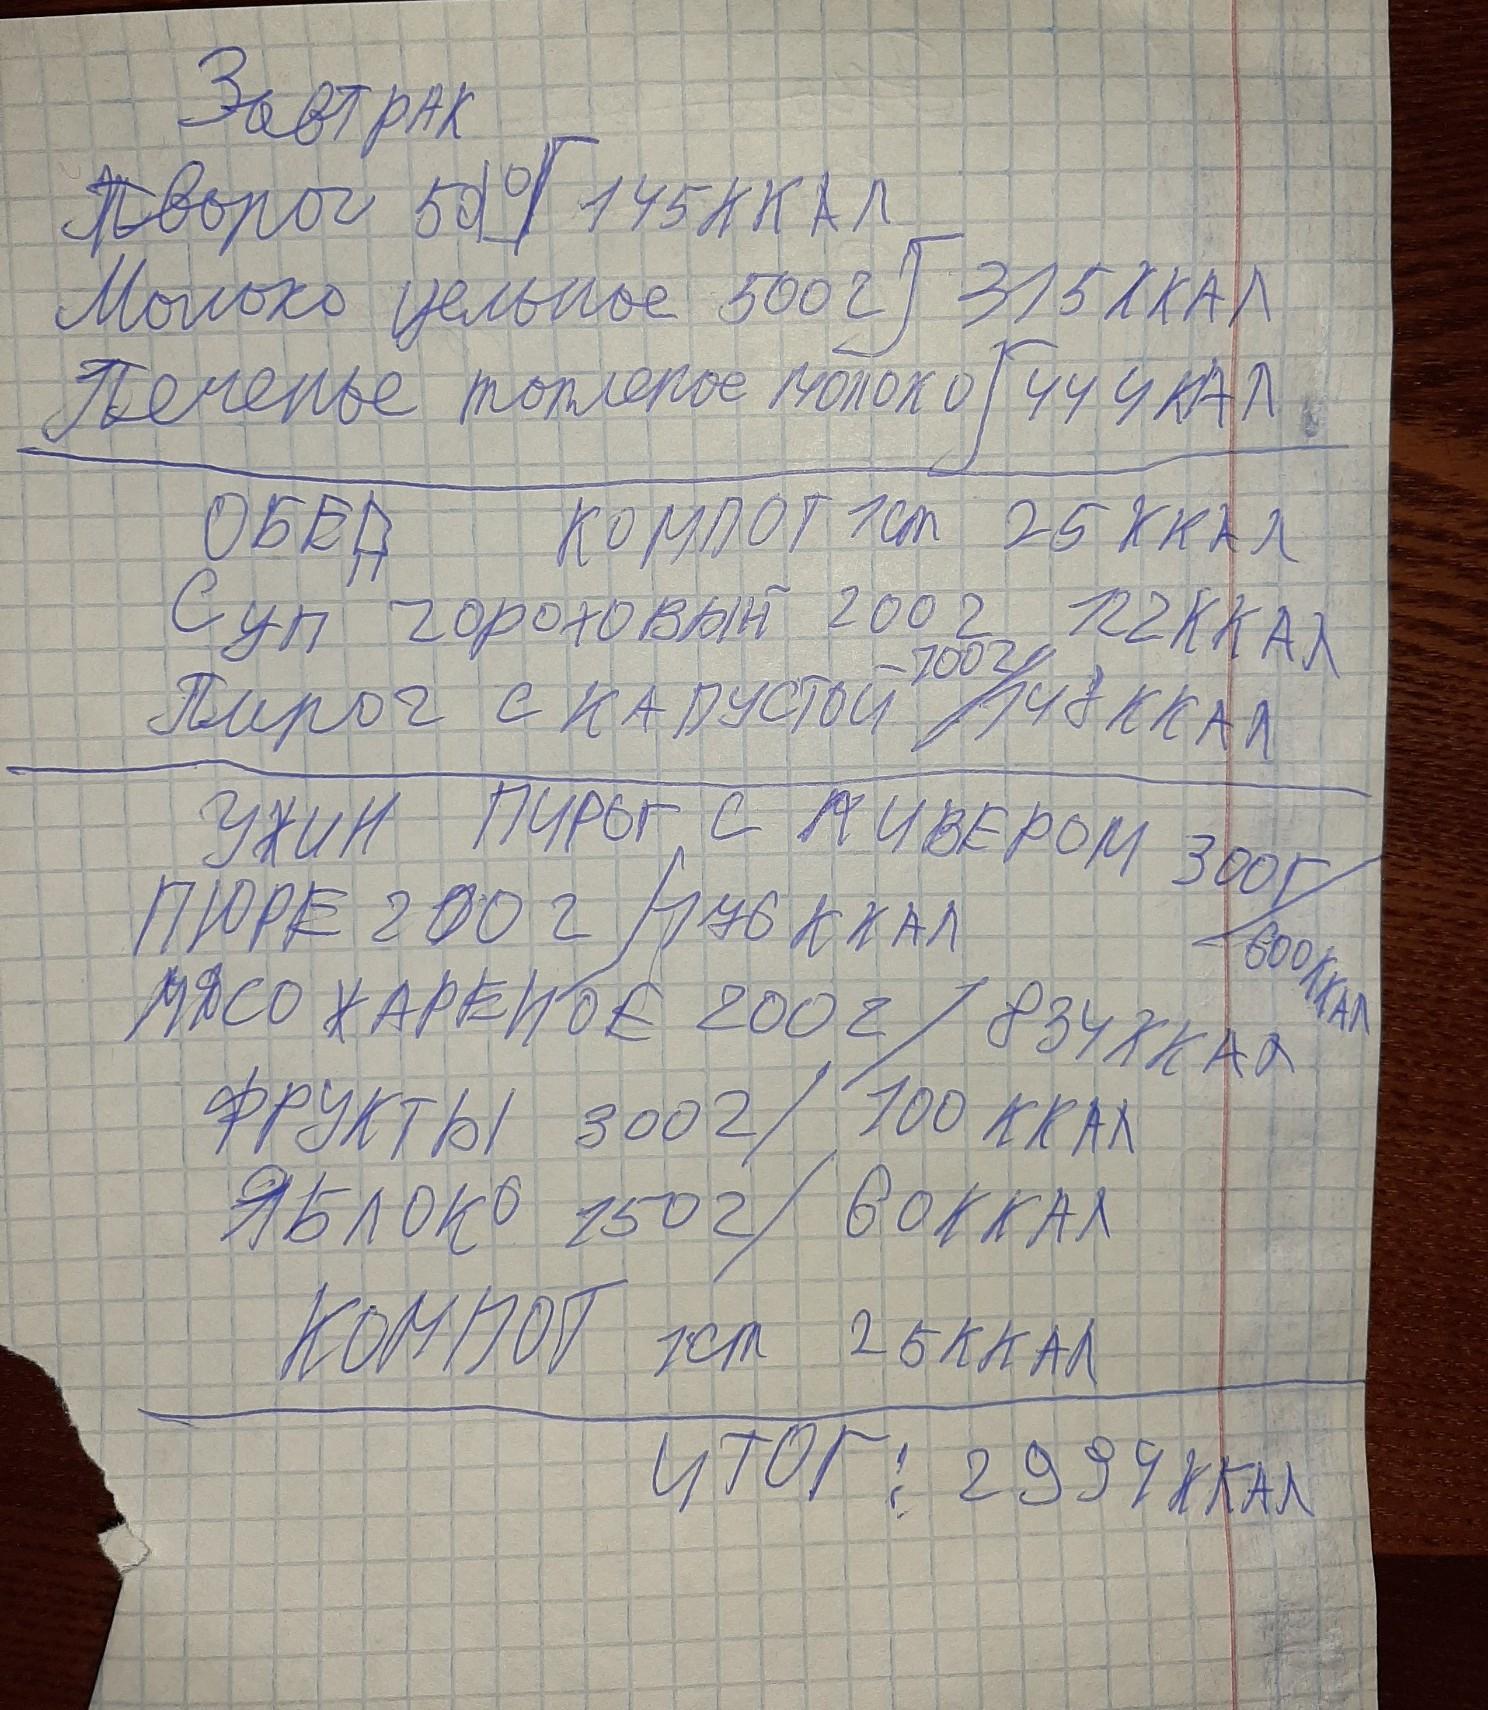 Завтрак
Творог 145ККАЛ
Молоко цельное 500г 315ККАЛ
Печенье топленое молоко 444КАЛ
ОБЕД КОМПОТ 1ст 25 ККАЛ
Суп гороховый 200г 122ККАЛ
Пирог С КАПУСТОЙ -100г/148ККАЛ
УЖИН ПИРОГ С ЛИВЕРОМ 300Г/600ККАЛ
ПЮРЕ 200г/176ККАЛ
МЯСО ЖАРЕНОЕ 200г/834ККАЛ
ФРУКТЫ 300г/100 ККАЛ
ЯБЛОКО 150г/60ККАЛ
КОМПОТ 1ст 25ККАЛ
ИТОГ: 2994ККАЛ